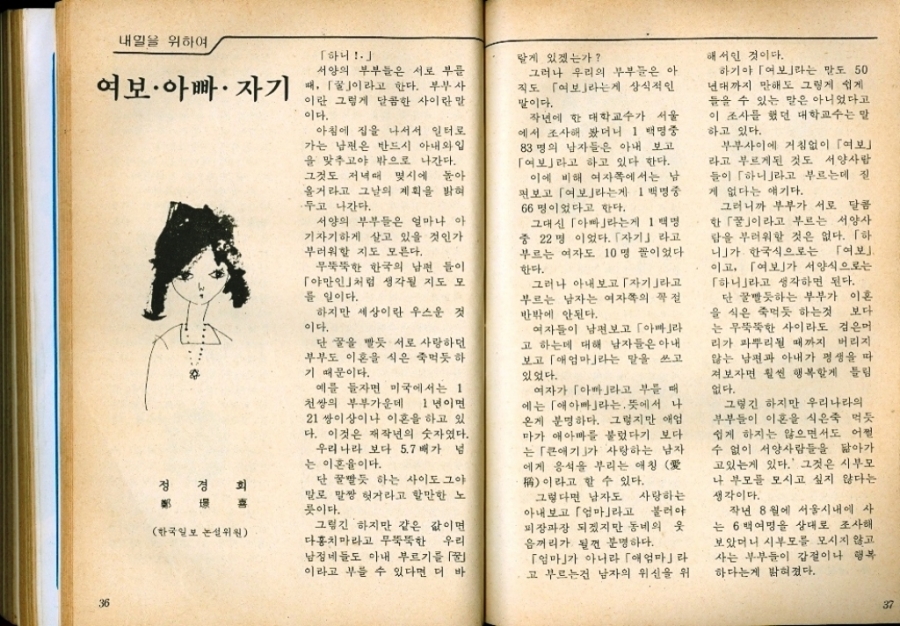 내일을 위하여
여보·아빠·자기
정 경 희
鄭 璟 喜
(한국일보 논설위원)
「하니!·」
서양의 부부들은 서로 부를
때, 「꿀」이라고 한다. 부부사
이란 그렇게 달콤한 사이란 말
이다.
아침에 집을 나서서 일터로
가는 남편은 반드시 아내와 입
을 맞추고야 밖으로 나간다.
그것도 저녁때 몇시에 돌아
올거라고 그날의 계획을 밝혀
두고 나간다.
서양의 부부들은 얼마나 아
기자기하게 살고 있을 것인가
부러워할 지도 모른다.
무뚝뚝한 한국의 남편 들이
「야만인」처럼 생각될 지도 모
를 일이다.
하지만 세상이란 우스운 것
이다.
단 꿀을 빨듯 서로 사랑하던
부부도 이혼을 식은 죽먹듯 하
기 때문이다.
예를 들자면 미국에서는 1
천쌍의 부부가운데 1년이면
21쌍이상이나 이혼을 하고 있
다. 이것은 재작년의 숫자였다.
우리나라 보다 5.7배가 넘
는 이혼율이다.
단 꿀빨듯 하는 사이도 그야
말로 말짱 헛거라고 할만한 노
릇이다.
그렇긴 하지만 같은 값이면
다홍치마라고 무뚝뚝한 우리
남정네들도 아내 부르기를「꿀」
이라고 부를 수 있다면 더 바
36
랄게 있겠는가?
그러나 우리의 부부들은 아
직도 「여보」라는게 상식적인
말이다.
작년에 한 대학교수가 서울
에서 조사해 봤더니 1백명중
83명의 남자들은 아내 보고
「여보」라고 하고 있다 한다.
이에 비해 여자쪽에서는 남
편보고 「여보」라는게 1백명중
66명이었다고 한다.
그대신 「아빠」라는게 1백명
중 22명 이었다. 「자기」라고
부르는 여자도 10명 꼴이었다
한다.
그러나 아내보고 「자기」라고
부르는 남자는 여자쪽의 꼭 절
반밖에 안된다.
여자들이 남편보고 「아빠」라
고 하는데 대해 남자들은 아내
보고 「애엄마」라는 말을 쓰고
있었다.
여자가 「아빠」라고 부를 때
에는 「애아빠」라는 뜻에서 나
온게 분명하다. 그렇지만 애엄
마가 애아빠를 불렀다기 보다
는 「큰애기」가 사랑하는 남자
에게 응석을 부리는 애칭 (愛
稱)이라고 할 수 있다.
그렇다면 남자도 사랑하는
아내보고 「엄마」라고 불러야
피장파장 되겠지만 동네의 웃
음꺼리가 될껀 분명하다.
「엄마」가 아니라 「애엄마」라
고 부르는건 남자의 위신을 위
해서인 것이다.
하기야 「여보」라는 말도 50
년대까지 만해도 그렇게 쉽게
들을 수 있는 말은 아니었다고
이 조사를 했던 대학교수는 말
하고 있다.
부부사이에 거침없이 「여보」
라고 부르게된 것도 서양사람
들이 「하니」라고 부르는데 질
게 없다는 얘기다.
그러니까 부부가 서로 달콤
한 「꿀」이라고 부르는 서양사
람을 부러워할 것은 없다. 「하
니」가 한국식으로는 「여보」
이고, 「여보」가 서양식으로는
「하니」라고 생각하면 된다.
단 꿀빨듯하는 부부가 이혼
을 식은 죽먹듯 하는것 보다
는 무뚝뚝한 사이라도 검은머
리가 파뿌리될 때까지 버리지
않는 남편과 아내가 평생을 따
져보자면 훨씬 행복할게 틀림
없다.
그렇긴 하지만 우리나라의
부부들이 이혼을 식은죽 먹듯
쉽게 하지는 않으면서도 어쩔
수 없이 서양사람들을 닮아가
고있는게 있다. 그것은 시부모
나 부모를 모시고 싶지 않다는
생각이다.
작년 8월에 서울시내에 사
는 6백여명을 상대로 조사해
보았더니 시부모를 모시지않고
사는 부부들이 갑절이나 행복
하다는게 밝혀졌다.
37